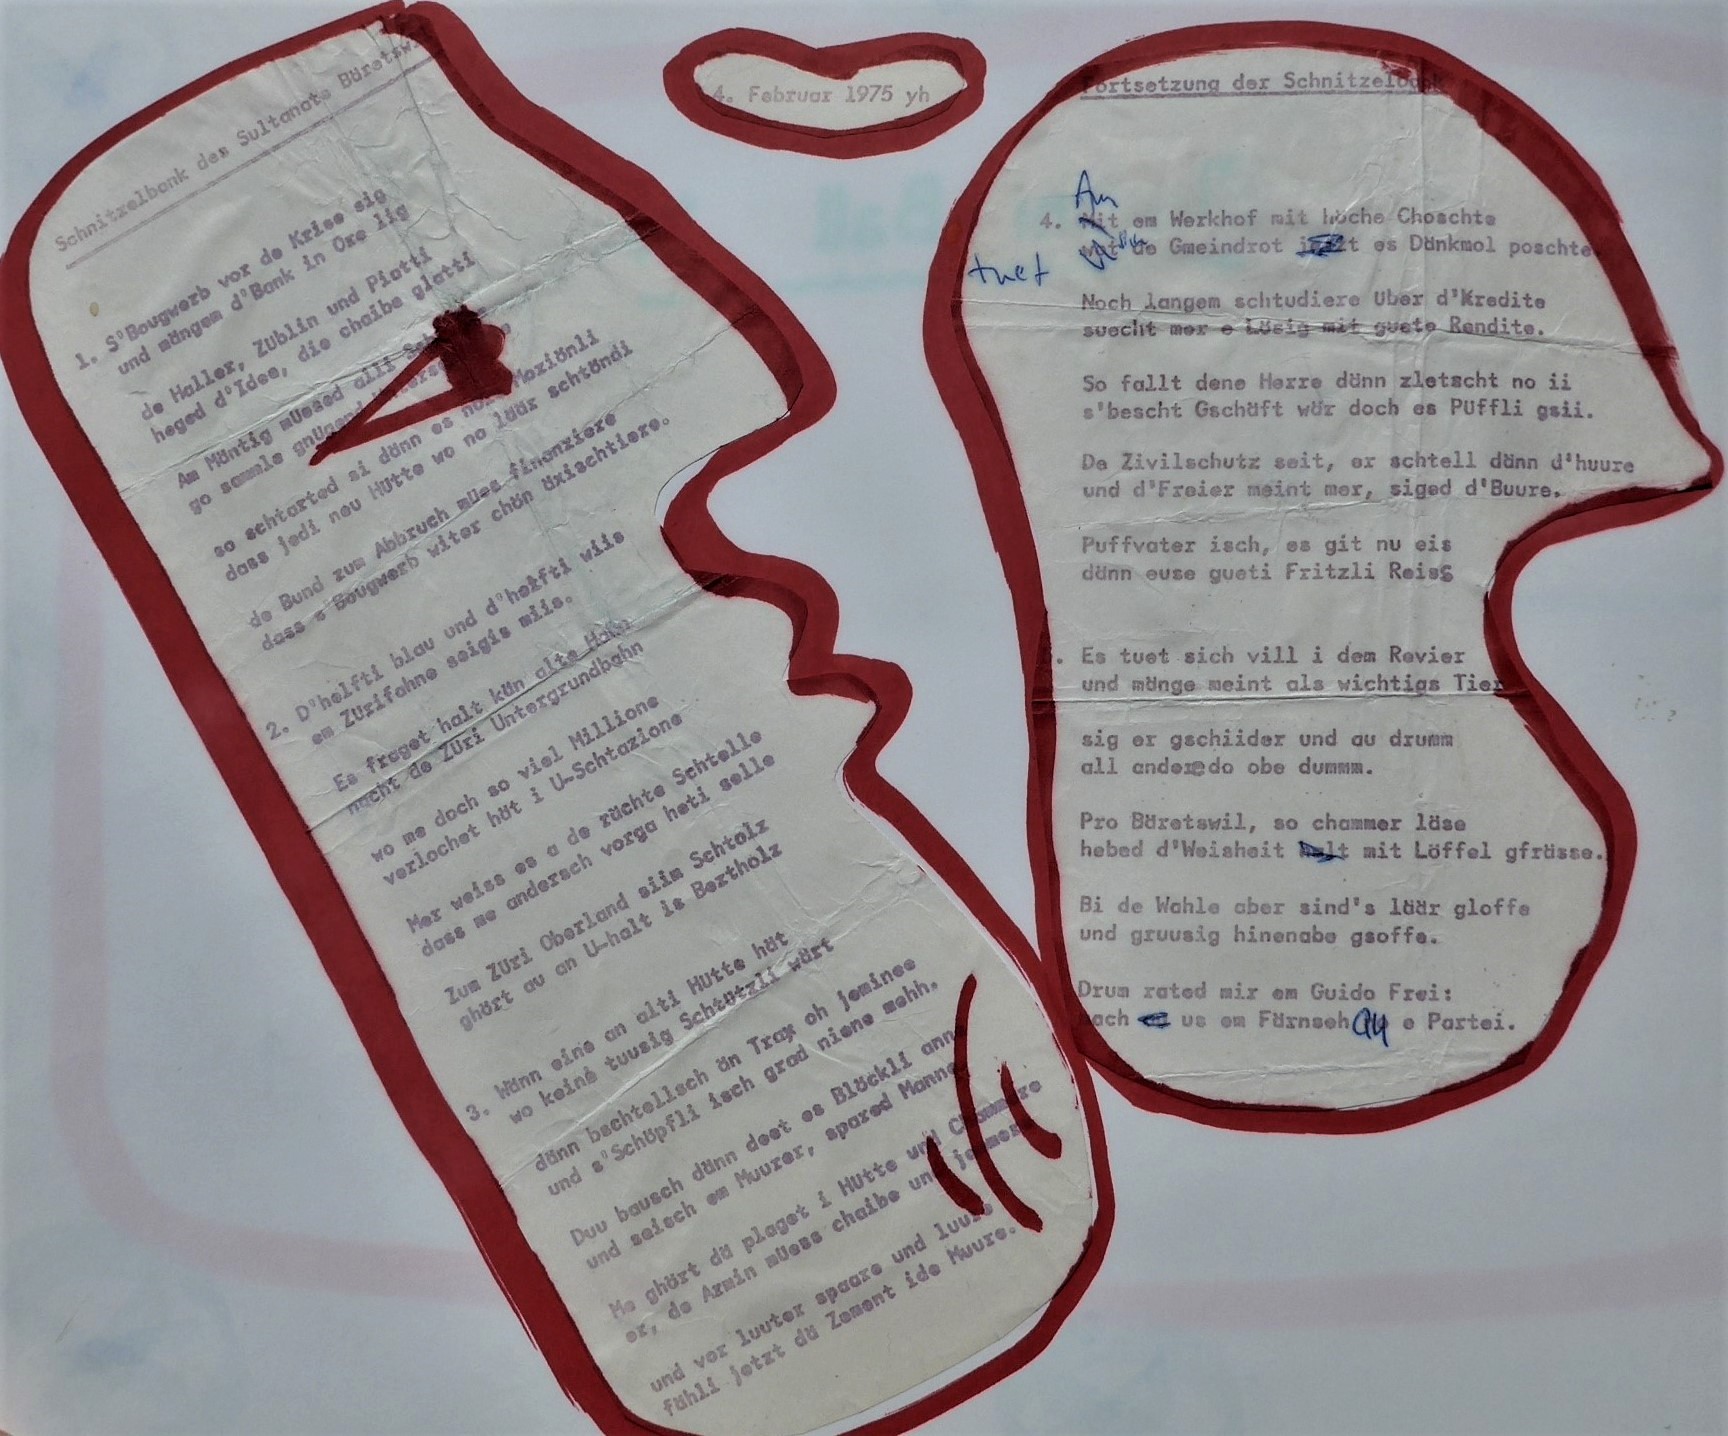 Schnitzelbank des Sultanats Bäretswil
1. S'Bougwerb vor de Kriese sig
und mängem d'Bank in Ore lig
de Haller, Züblin und Piatti
heged d'Idee, die chaibe glatti
Am Mäntig müesed alli
go sammle gnügend
so schtarted si dänn es Maziönli
dass jedi neu Hütte wo no läär schtöndi
de Bund zum Abbruch mües finanziere
dass s'Bougwerb witer chön äxischtiere.
2. D'helfti blau und d'helfti wiis
em Zürifahne seigis miis.
Es fraget halt kän alte Hahn
nacht de Züri Untergrundbahn
wo me doch so viel Millione
verlochet hät i U-Schtazione
Mer weiss es a de rächte Schtelle
dass me andersch vorga heti selle
Zum Züri Oberland siim Schtolz
ghört au an U-halt is Bertholz
3. Wänn eine an alti Hütte hät
wo keine tuusig Schtützli wärt
dänn bschtellsch än Trax oh jeminee
und s'Schöpfli isch grad niene mehh.
Duu bausch dänn deet es Blöckli anne
und seisch em Muurer, spared Manne
Me ghört dä plaget i Hütte und Chammere
er, de Armin müess chaibe und jommere
und vor luuter spaare und luure
fähli jetzt dä Zement ide Muure.
4. Februar 1975 yh
Fortsetzung der Schnitzelbank
Am
4. Mit em Werkhof mit höche Choschte
tuet de Gmeindrot es Dänkmol poschte
Noch langem schtudiere über d'Kredite
suecht mer e Lösig mit guete Rendite.
So fallt dene Herre dänn zletscht no ii
s'bescht Gschäft wär doch es Püffli gsii.
De Zivilschutz seit, er schtell dänn d'huure
und d'Freier meint mer, siged d'Buure.
Puffvater isch, es git nu eis
dänn euse gueti Fritzli Reiss
. Es tuet sich vill i dem Revier
und mänge meint als wichtigs Tier
sig er gschiider und au drumm
all andere do obe dummm.
Pro Bäretswil, so chammer läse
hebed d'Weisheit mit Löffel gfrässe.
Bi de Wahle aber sind's läär gloffe
und gruusig hinenabe gsoffe.
Drum rated mir em Guido Frei:
mach us em Färnseh au e Partei.